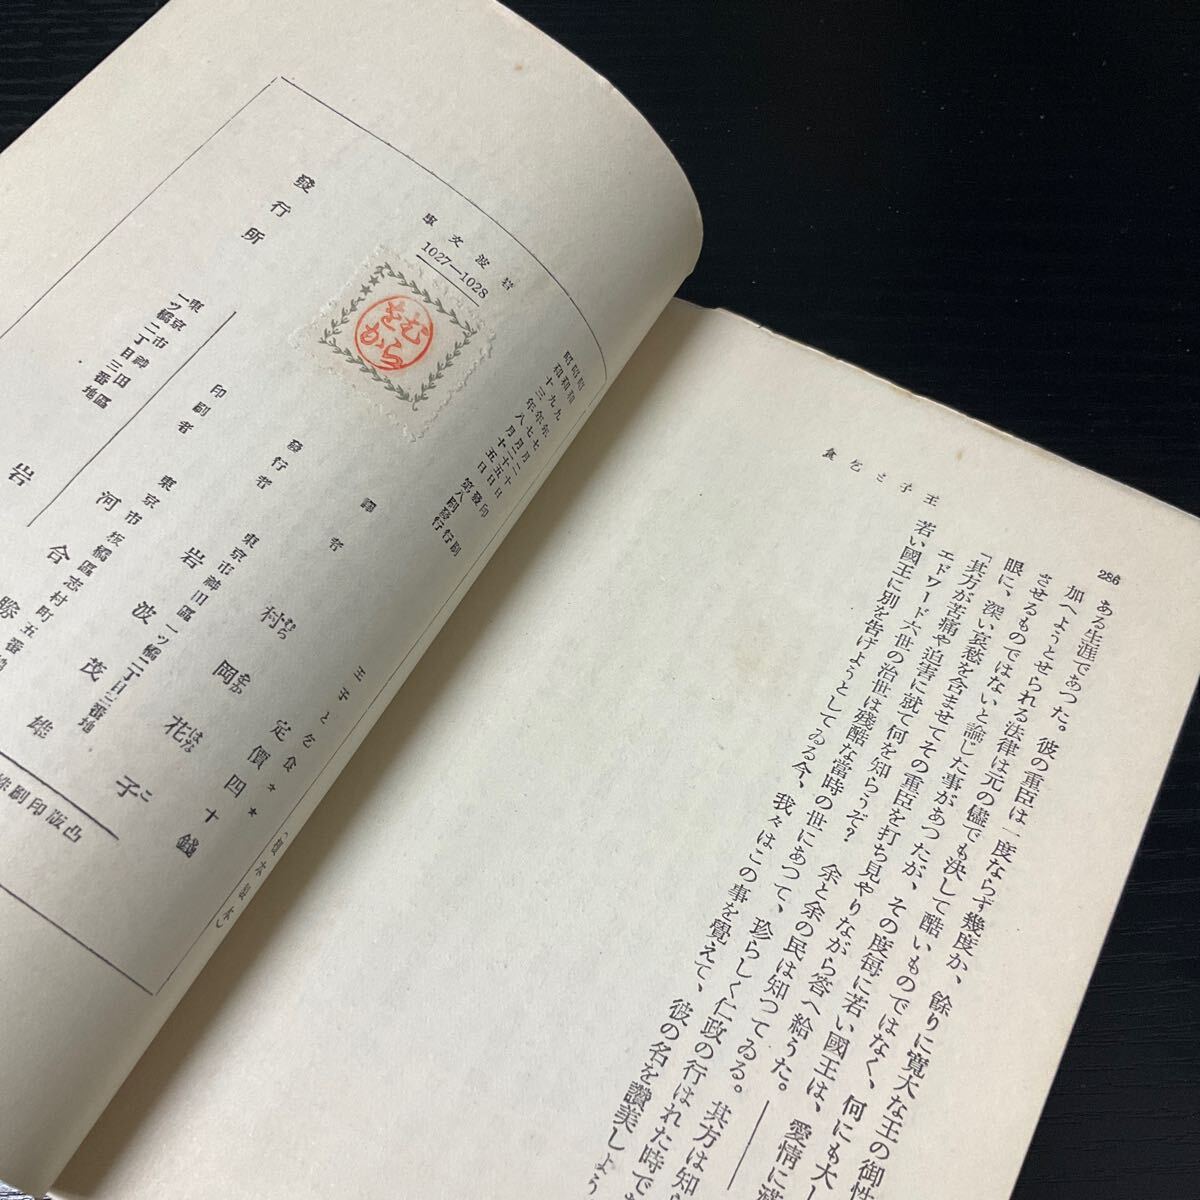 286
王子と乞食
ある生涯であつた。彼の重臣は一度ならず幾度か、餘りに寛大な王の御性
加へようとせられる法律は元の儘でも決して酷いものではなく、何にも大
させるものではないと諭じた事があつたが、その度毎に若い國王は、愛情に滿
眼に、深い哀愁を含ませてその重臣を打ち見やりながら答へ給うた。
「其方が苦痛や迫害に就て何を知らうぞ? 余と余の民は知つてゐる。其方は知
エドワード六世の治世は殘酷な當時の世にあつて、珍らしく仁政の行はれた時で
若い國王に別を告げようとしてゐる今、我々はこの事を覺えて、彼の名を讚美しよう
岩波文庫
1027—1028
むらをか
昭和九年七月二十日印刷
昭和九年七月二十五日發行
昭和十三年八月十五日第八刷發行
王子と乞食
定價四十錢
★★
譯者
村岡花子
むら
をか
はな
こ
發行者
東京市神田區一ツ橋二丁目三番地
岩波茂雄
印刷者
東京市板橋區志村町五番地
河合勝
發行所
東京市神田區
一ツ橋二丁目三番地
岩
凸版印刷株